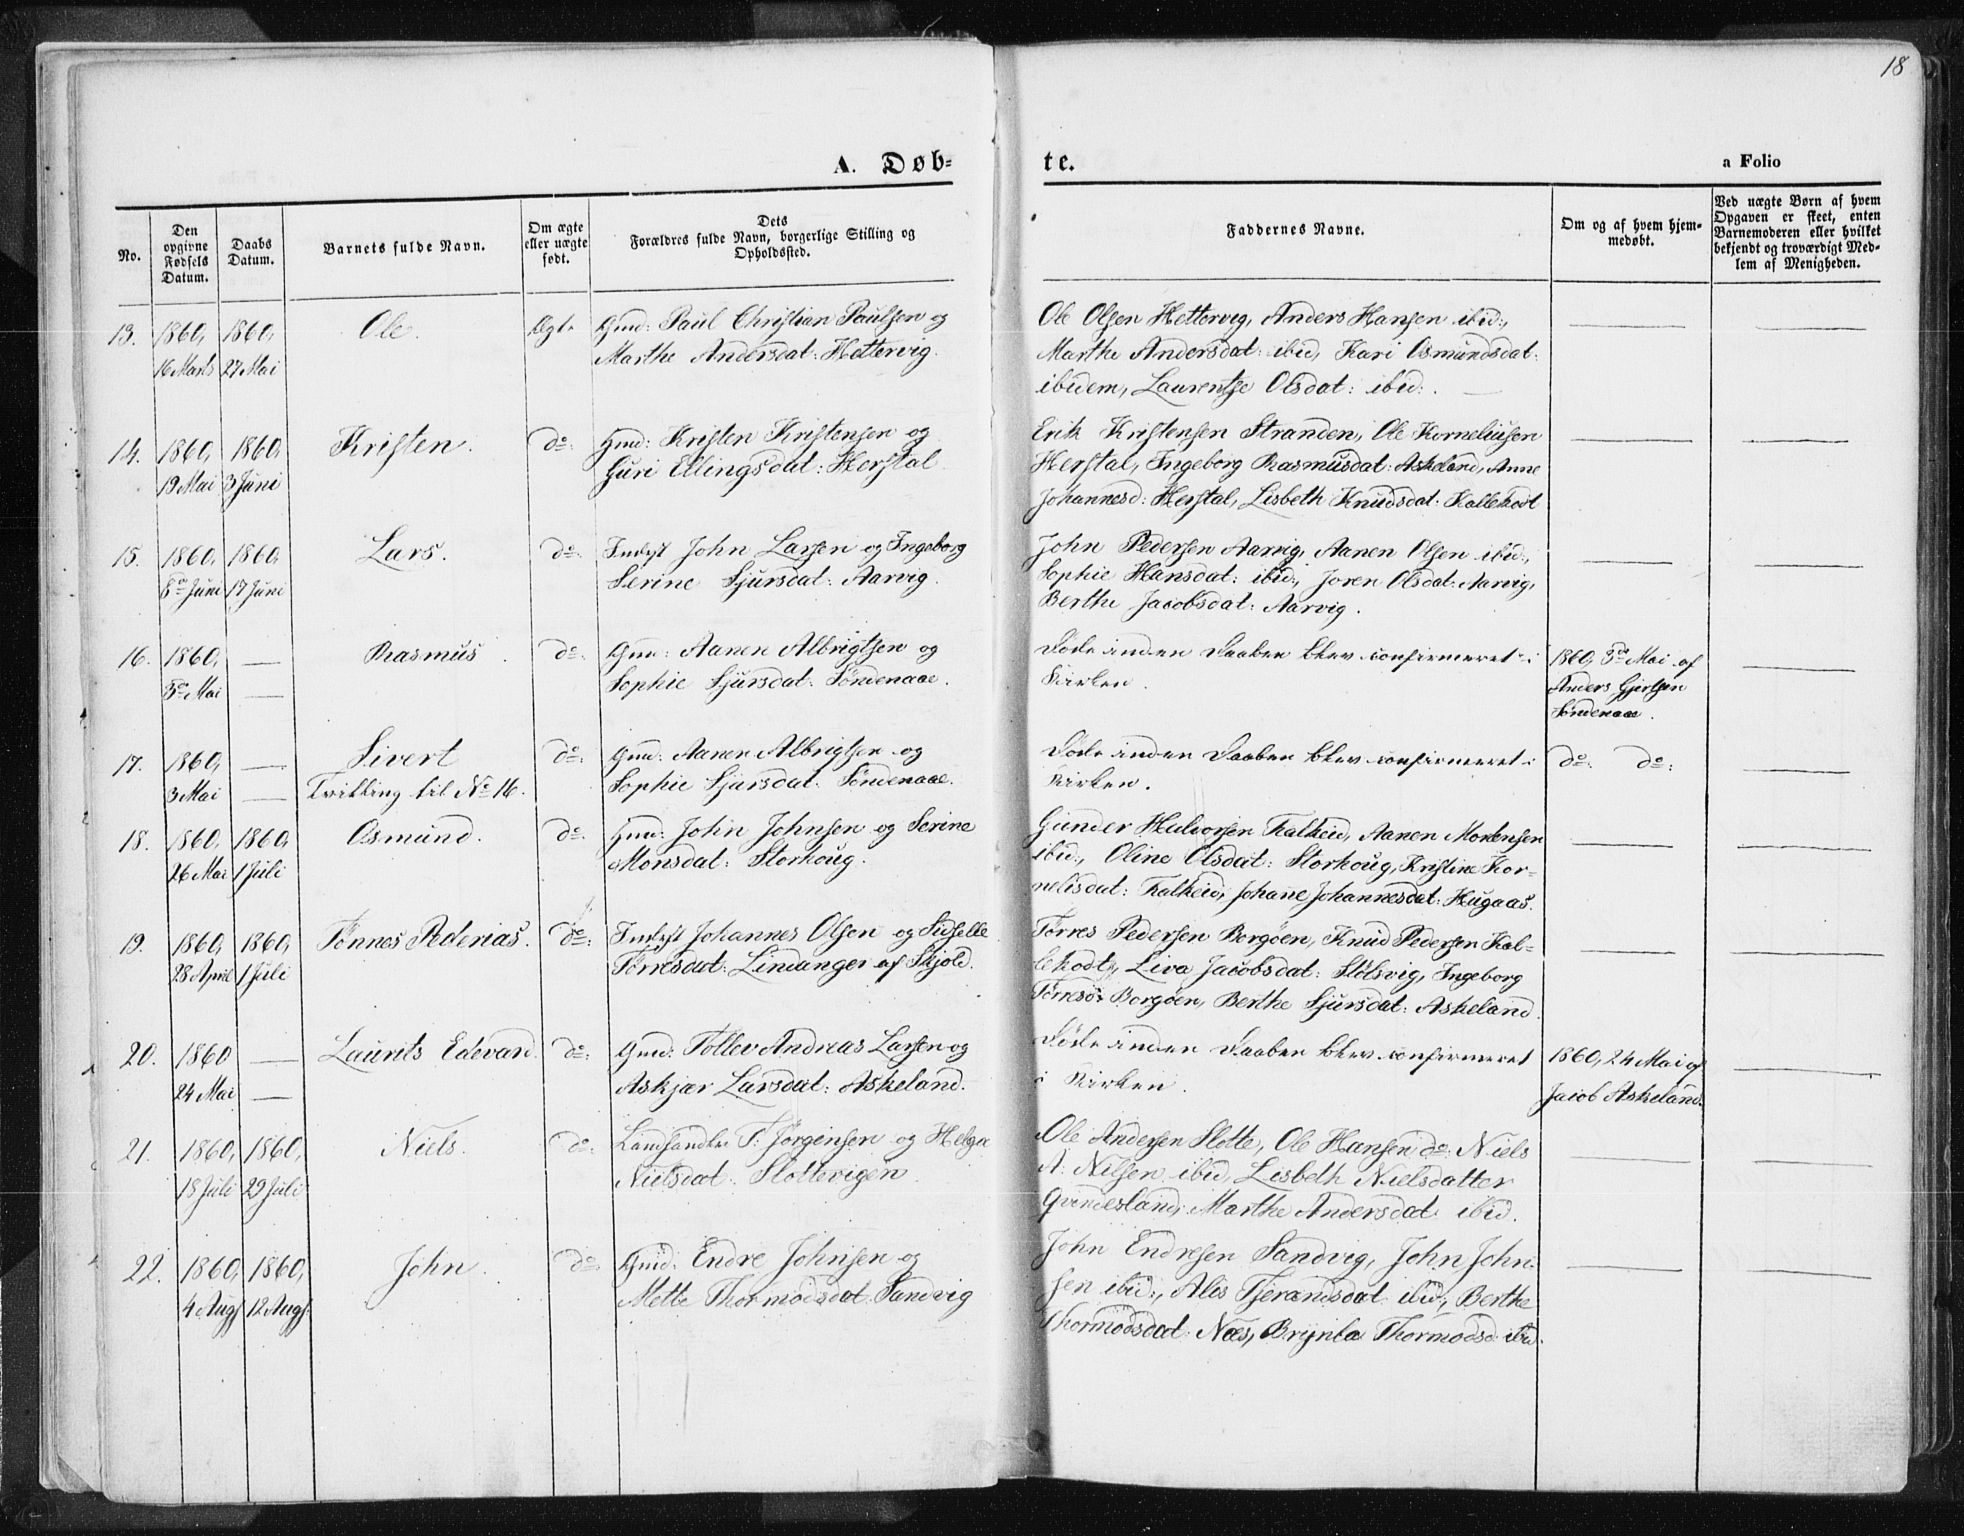 18
A. Døb-
te.
a Folio
No.
Den opgivne Fødsels Datum.
Daabs Datum.
Barnets fulde Navn.
Om ægte eller uægte født.
Dets Forældres fulde Navn, borgerlige Stilling og Opholdssted.
Faddernes Navne.
Om og af hvem hjemmedøbt.
Ved uægte Børn af hvem Opgaven er skeet, enten Barnemoderen eller hvilket bekjendt og troværdigt Medlem af Menigheden.
13. 1860, 1860, Ole. Ægt. Gmd: Paul Christian Paulsen og
16 Marts 27 Mai Marthe Andersdat: Hettervig.
Ole Olsen Hettervig, Anders Hansen ibid:,
Marthe Andersdat: ibid, Kari Osmundsdat:
ibidem, Laurentse Olsdat: ibid:.
14. 1860, 1860, Kristen. do: Gmd: Kristen Kristensen og
19 Mai 3 Juni Guri Ellingsdat: Herstal
Erik Kristensen Stranden, Ole Korneliusen
Herstal, Ingeborg Rasmusdat: Askeland, Anne
Johannesd: Herstal, Lisbeth Knudsdat: Kallekodt
15. 1860, 1860, Lars. do: Indst John Larsen og Ingeborg
8de Juni 17 Juni Serine Sjursdat: Aarvig.
John Pedersen Aarvig, Aanen Olsen ibid:,
Sophie Hansdat: ibid:, Joren Olsdat: Aarvig,
Berthe Jacobsdat: Aarvig.
16. 1860, Rasmus. do: Gmd: Aanen Albrigtsen og
3de Mai Sophie Sjursdat: Søndenaae.
Døde inden Daaben blev confirmeret i
Kirken.
1860, 3de Mai af
Anders Gjertsen
Søndenaae.
17. 1860, Sivert do: Gmd: Aanen Albrigtsen og
3 Mai Tvilling til No 16. Sophie Sjursdat: Søndenaae.
Døde inden Daaben blev confirmeret i
Kirken.
do: do:
18. 1860, 1860, Osmund. do: Gmd: John Johnsen og Serine
26 Mai 1 Juli Monsdat: Storhoug.
Gunder Halvorsen Falkeid, Aanen Mortensen
ibid:, Oline Olsdat: Storhoug, Kristine Kor-
nelisdat: Falkeid, Johane Johannesdat: Hugaas.
19. 1860, 1860, Tønnes Pederias. do: Indst Johannes Olsen og Sidselle
28 April 1 Juli Tørresdat: Lindanger af Skjold.
Tørres Pedersen Borgøen, Knud Pedersen Kal-
lekodt, Liva Jacobsdat: Stølsvig, Ingeborg
Tørresd: Borgøen, Berthe Sjursdat: Askeland.
20. 1860 Laurits Edevard. do: Gmd: Tollev Andreas Larsen og
24 Mai Askjær Larsdat: Askeland.
Døde inden Daaben blev confirmeret
i Kirken.
1860, 24 Mai af
Jacob Askeland.
21. 1860, 1860, Niels. do: Landhandler T: Jørgensen og Helga
18 Juli 29 Juli Nielsdat: Slottevigen
Ole Andersen Slette, Ole Hansen do: Niels
A: Nilsen ibid, Lisbeth Nielsdatter
Qvindesland, Marthe Andersdat: ibid.
22. 1860, 1860, John. do: Gmd: Endre Johnsen og
4 Augs 12 Augs Mette Thormodsdat: Sandvig
John Endresen Sandvig, John John-
sen ibid:, Alis Tjerandsdat: ibid:, Berthe
Thormodsdat: Næs, Brynla Thormodsd: ibid.